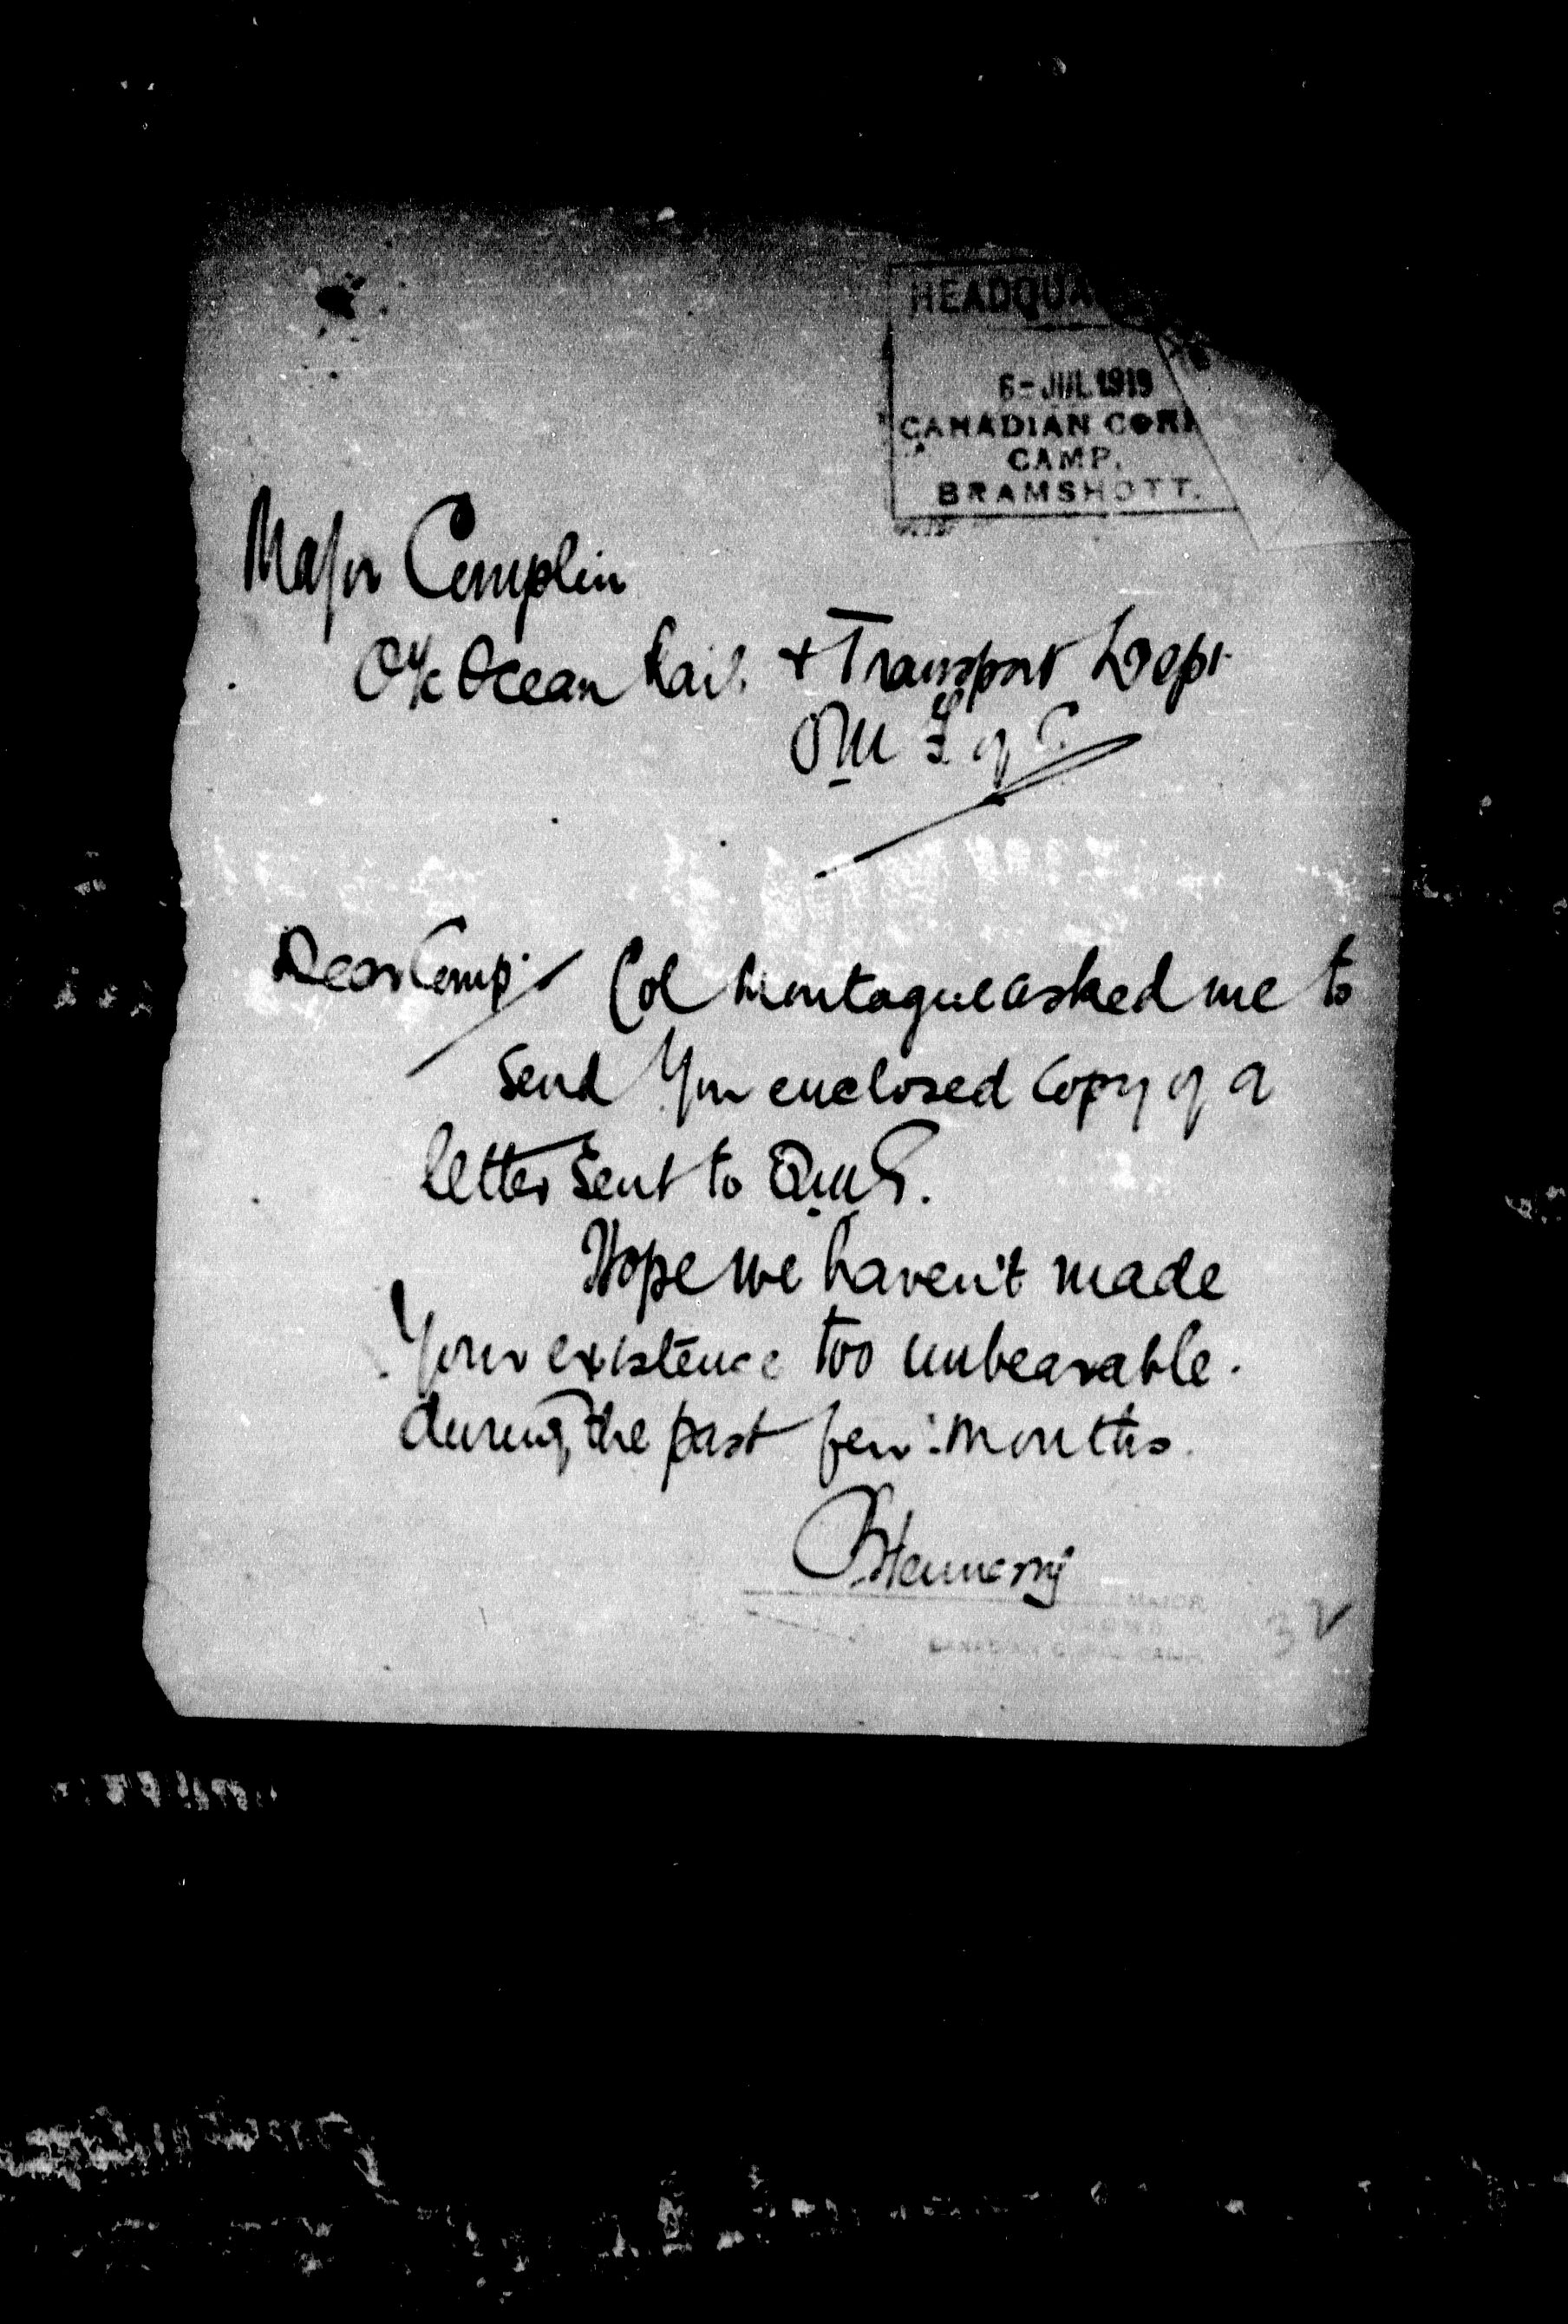 HEADQUA
6-JUL 1919
CANADIAN CORP
CAMP.
BRAMSHOTT.
Major Complin
O i/c Ocean Rail & Transport Dept
OM F of C
Dear Comp. Col Montague asked me to
send you enclosed copy of a
letter sent to QMG.
Hope we haven't made
your existence too unbearable.
during the past few months.
Hennessy
MAJOR
CANADIAN CORPS CAMP